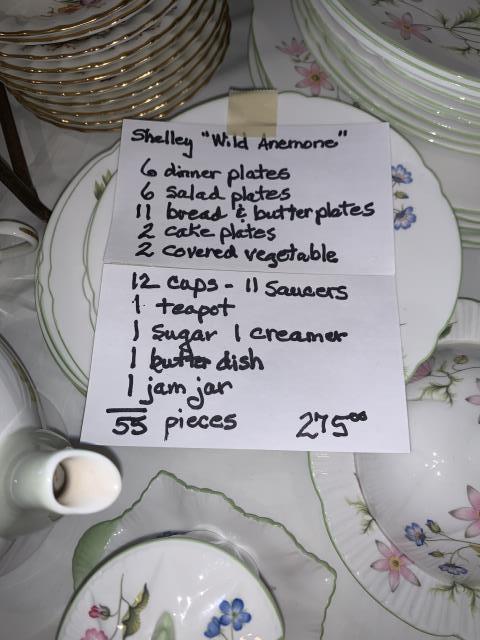 Shelley "Wild Anemone"
6 dinner plates
6 salad plates
11 bread & butter plates
2 cake plates
2 covered vegetable
12 cups - 11 Saucers
1 teapot
1 Sugar 1 creamer
1 butter dish
1 jam jar
55 pieces 275⁰⁰